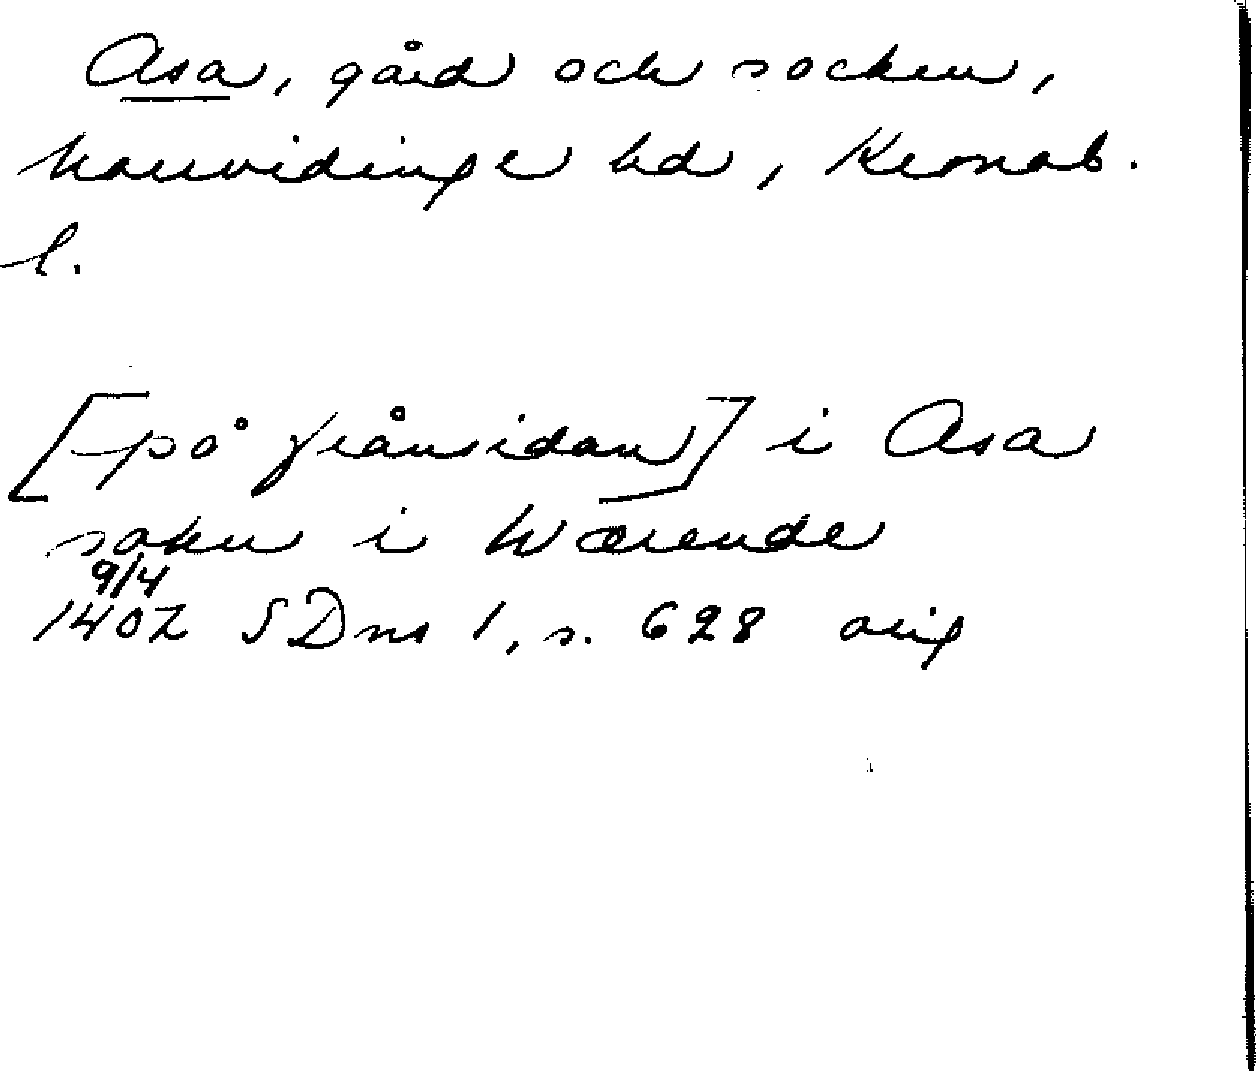 Asa, gård och socken,
Norrvidinge hd, Kronob.
l.
[på frånsidan] i Asa
sokn i Wærende
9/4
1402 SDns 1, s. 628 orig